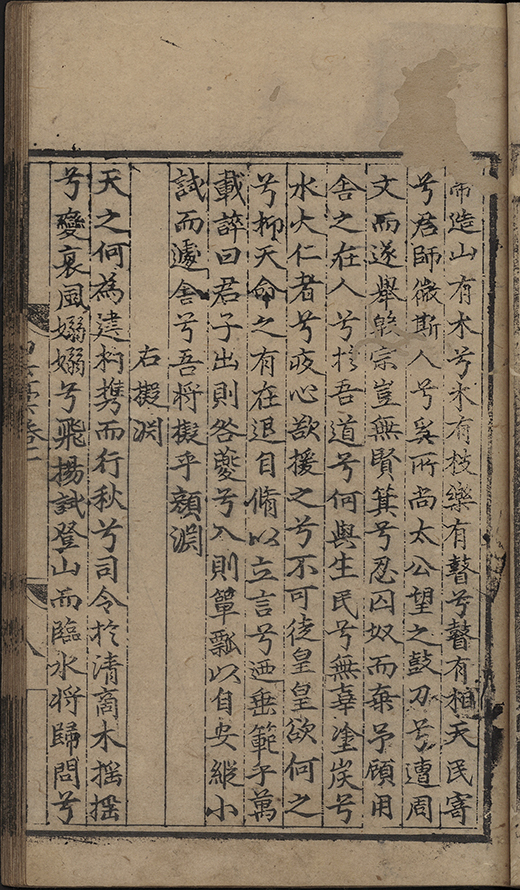 造山有木兮木有枝樂有瞽兮瞽有相天民寄
兮君師微斯人兮奚所尚太公望之鼓刀兮遭周
文而遂舉殷宗豈無賢箕兮忍囚奴而棄予顧用
舍之在人兮於吾道兮何與生民兮無辜塗炭兮
水火仁者兮疚心欲援之兮不可徒皇皇欲何之
兮抑天命之有在退自脩以立言兮迺垂範乎萬
載誶曰君子出則咎夔兮入則簞瓢以自安縱小
試而遽舍兮吾將擬乎顏淵
右擬淵
天之何為建杓携而行秋兮司令於清商木搖搖
兮變衰風嫋嫋兮飛揚試登山而臨水將歸問兮
卷二